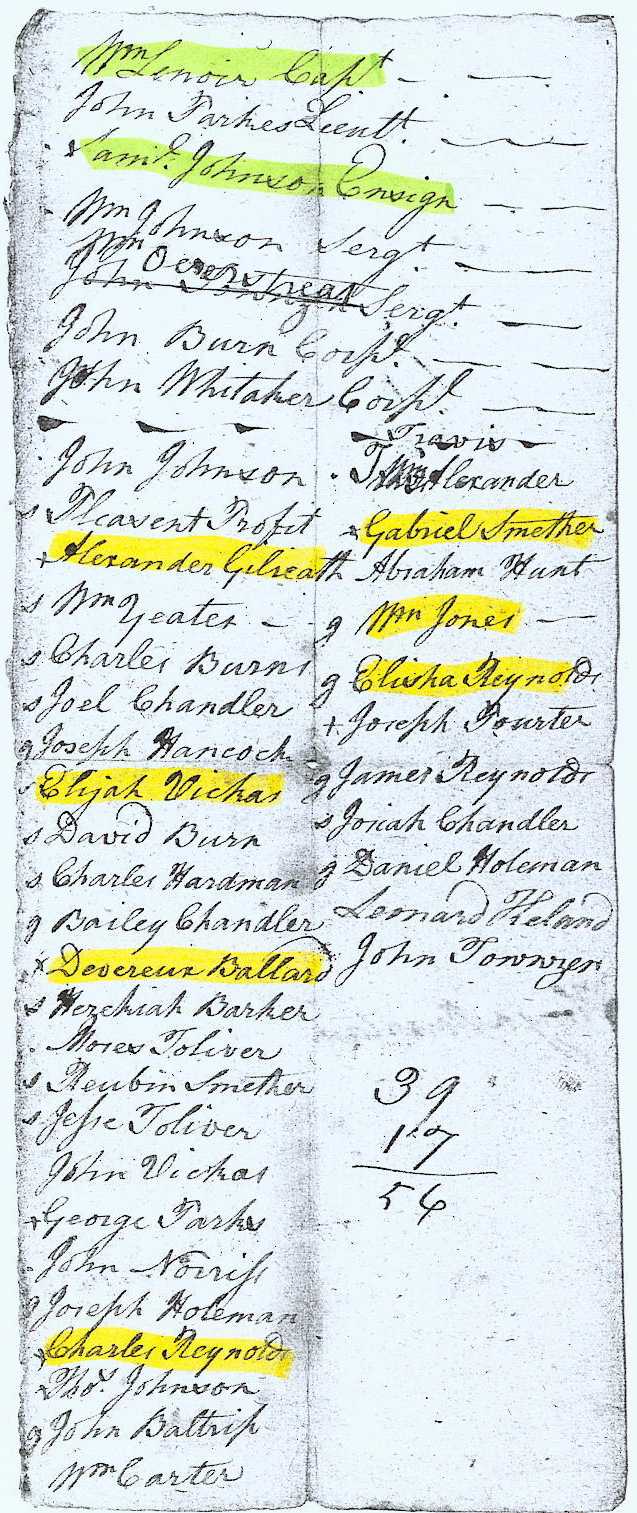 Wm Lenoir Capt
John Parkes Lieutt.
+ Saml. Johnson Ensign
Wm Johnson Sergt
Wm Overstreat
John Sergt.
John Burn Corpl.
John Whitaker Corpl.
John Johnson
s Pleasent Profit
+ Alexander Gilreath
s Wm Yeates
s Charles Burns
s Joel Chandler
g Joseph Hancock
s Elijah Vickas
s David Burn
s Charles Hardman
g Bailey Chandler
x Devereux Ballard
s Hezekiah Barker
Moses Toliver
s Reubin Smether
s Jesse Toliver
John Vickas
+ George Parks
John Norriss
g Joseph Holeman
+ Charles Reynolds
+ Thos. Johnson
g John Baltrip
Wm Carter
Travis
Alexander
+ Gabriel Smether
Abraham Hunt
g Wm Jones
g Elisha Reynolds
+ Joseph Pourter
g James Reynolds
s Josiah Chandler
g Daniel Holeman
Lennard Keland
John Townzen
39
17
54